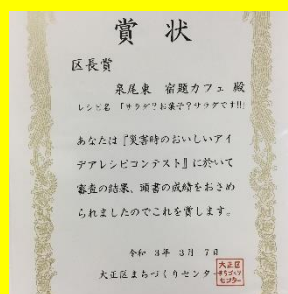 賞状
区長賞
泉尾東 宿題カフェ 殿
レシピ名 「サラダ?お菓子?サラダです!!」
あなたは『災害時のおいしいアイ
デアレシピコンテスト』に於いて
審査の結果、頭書の成績をおさめ
られましたのでこれを賞します。
令和 3年 3月 7日
大正区まちづくりセンター
大正区
まちづくり
センター